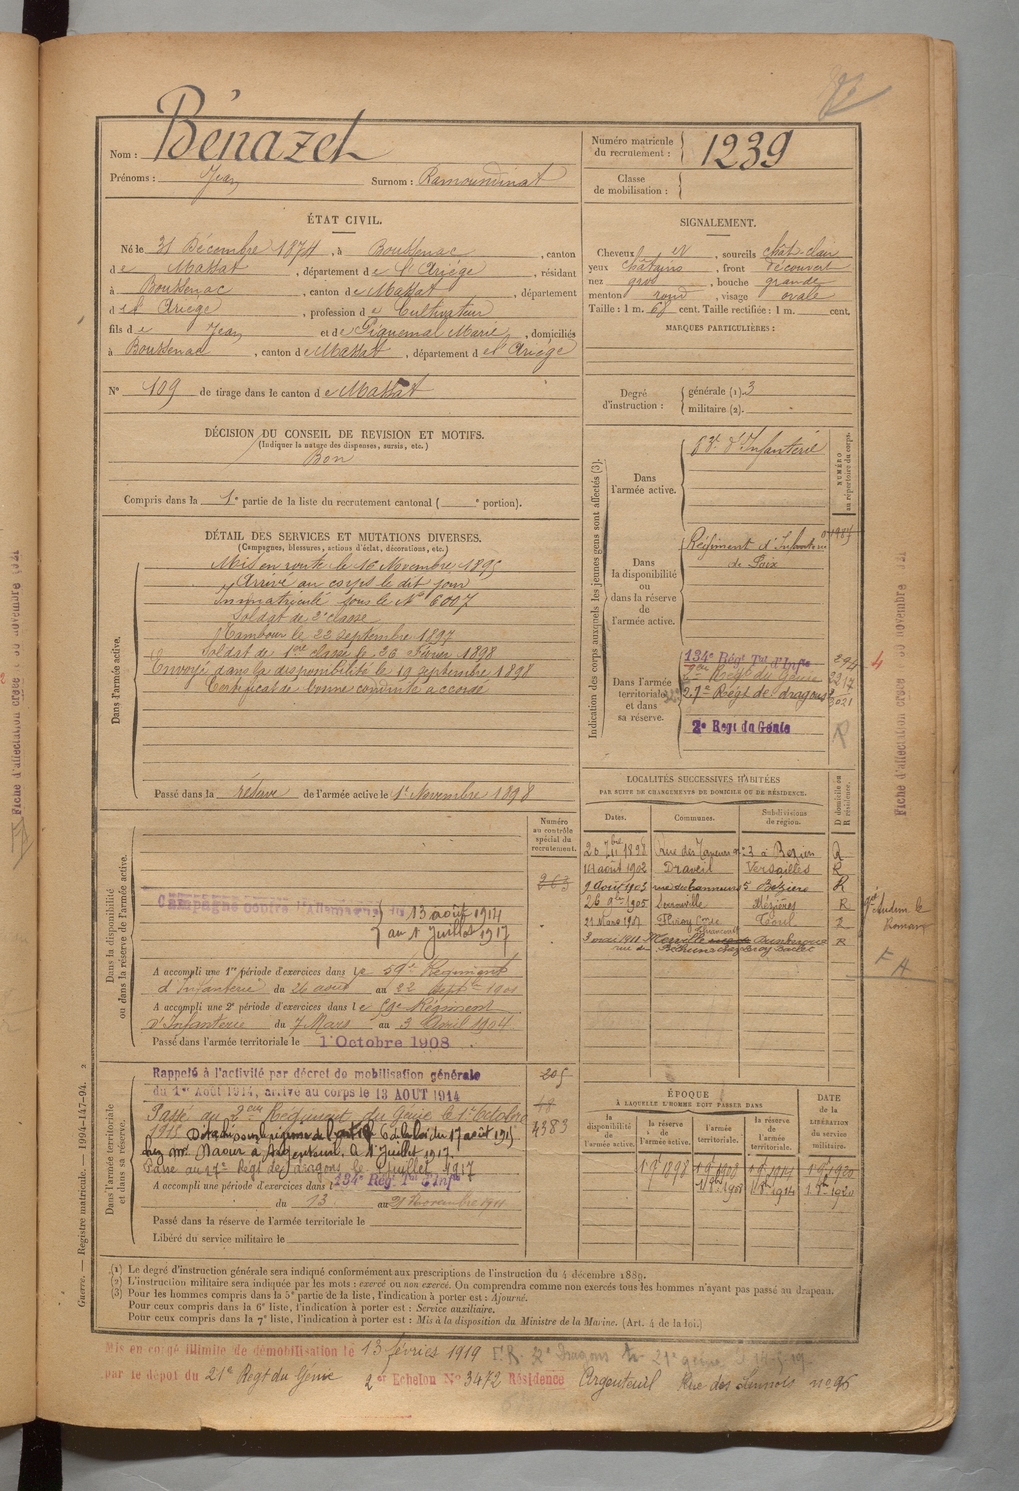 Nom : Bénazet
Prénoms : Jean Surnom : Ramoundinat
Numéro matricule du recrutement : 1239
Classe de mobilisation :
ÉTAT CIVIL.
Né le 31 Décembre 1874, à Boussenac, canton
de Massat, département de l'Ariége, résidant
à Boussenac, canton de Massat, département
d el Ariége, profession de Cultivateur
fils de Jean et de Piquemal Marie, domiciliés
à Boussenac, canton de Massat, département d el'Ariége
N° 109 de tirage dans le canton de Massat
SIGNALEMENT.
Cheveux et, sourcils chât-clair
yeux châtains, front découvert
nez gros, bouche grande
menton rond, visage ovale
Taille : 1 m. 68 cent. Taille rectifiée : 1 m. cent.
MARQUES PARTICULIÈRES :
Degré d'instruction :
générale (1). 3
militaire (2).
DÉCISION DU CONSEIL DE REVISION ET MOTIFS.
(Indiquer la nature des dispenses, sursis, etc.)
Bon
Compris dans la 1e partie de la liste du recrutement cantonal ( e portion).
DÉTAIL DES SERVICES ET MUTATIONS DIVERSES.
(Campagnes, blessures, actions d'éclat, décorations, etc.)
Dans l'armée active.
Mis en route le 16 Novembre 1895
Arrivé au corps le dit jour
Immatriculé sous le N° 6007
Soldat de 2e classe
Tambour le 22 septembre 1897
Soldat de 1ère classe le 26 Février 1898
Envoyé dans la disponibilité le 19 septembre 1898
Certificat de bonne conduite accordé
Passé dans la réserve de l'armée active le 1r Novembre 1898
Indication des corps auxquels les jeunes gens sont affectés (3).
NUMÉRO au répertoire du corps.
Dans l'armée active.
83e d'Infanterie
Dans la disponibilité ou dans la réserve de l'armée active.
Régiment d'Infanterie
de Foix
Dans l'armée territoriale et dans sa réserve.
134e Régt Tal d'Infie
Régt du Génie
27e Régt de dragons
2e Regt du Génie
3021
R
LOCALITÉS SUCCESSIVES HABITÉES
PAR SUITE DE CHANGEMENTS DE DOMICILE OU DE RÉSIDENCE.
Dates. Communes. Subdivisions de région. D domicile ou R résidence.
20 7bre 1898 rue des 3 à Beziers R
14 août 1902 Draveil Versailles R
9 Août 1903 5 Béziers R
26 1905 Mézières R
21 Mars 1907 Toul R
8 mai 1911 Merville Dunkerque R
Numéro au contrôle spécial du recrutement.
263
Dans la disponibilité ou dans la réserve de l'armée active.
Campagne contre l'Allemagne du 13 août 1914
au 1 Juillet 1917
A accompli une 1re période d'exercices dans le 59e Régiment
d'Infanterie du 26 août au 22 Septbre 1901
A accompli une 2e période d'exercices dans le 59e Régiment
d'Infanterie du 7 Mars au 3 Avril 1904
Passé dans l'armée territoriale le 1 Octobre 1908
Dans l'armée territoriale et dans sa réserve.
Rappelé à l'activité par décret de mobilisation générale
du 1er Août 1914, arrivé au corps le 13 AOUT 1914
Passé au 2ème Régiment du Génie le 1er Octobre
1915 Détaché 6 de la loi du 17 août 1915
chez Mr à Argenteuil. Le 1 Juillet 1917.
Passé au 27e Régt de dragons le 1 Juillet 1917
A accompli une période d'exercices dans l 134e Régt Tal d'Infie
du 13 au 21 Novembre 1911
Passé dans la réserve de l'armée territoriale le
Libéré du service militaire le
205
48
4383
ÉPOQUE
À LAQUELLE L'HOMME DOIT PASSER DANS
la disponibilité de l'armée active. la réserve de l'armée active. l'armée territoriale. la réserve de l'armée territoriale.
DATE de la LIBÉRATION du service militaire.
1 9bre 1898 1 9bre 1908 1 9bre 1914 1 9bre 1920
1 8bre 1908 1 8bre 1914 1 8bre 1920
(1) Le degré d'instruction générale sera indiqué conformément aux prescriptions de l'instruction du 4 décembre 1889.
(2) L'instruction militaire sera indiquée par les mots : exercé ou non exercé. On comprendra comme non exercés tous les hommes n'ayant pas passé au drapeau.
(3) Pour les hommes compris dans la 5e partie de la liste, l'indication à porter est : Ajourné.
Pour ceux compris dans la 6e liste, l'indication à porter est : Service auxiliaire.
Pour ceux compris dans la 7e liste, l'indication à porter est : Mis à la disposition du Ministre de la Marine. (Art. 4 de la loi.)
Mis en congé illimité de démobilisation le 13 février 1919
par le dépôt du 21e Regt du Génie 2er Echelon No 3472 Résidence Argenteuil Rue des no 96
Guerre. — Registre matricule. — 1994-147-94. 2